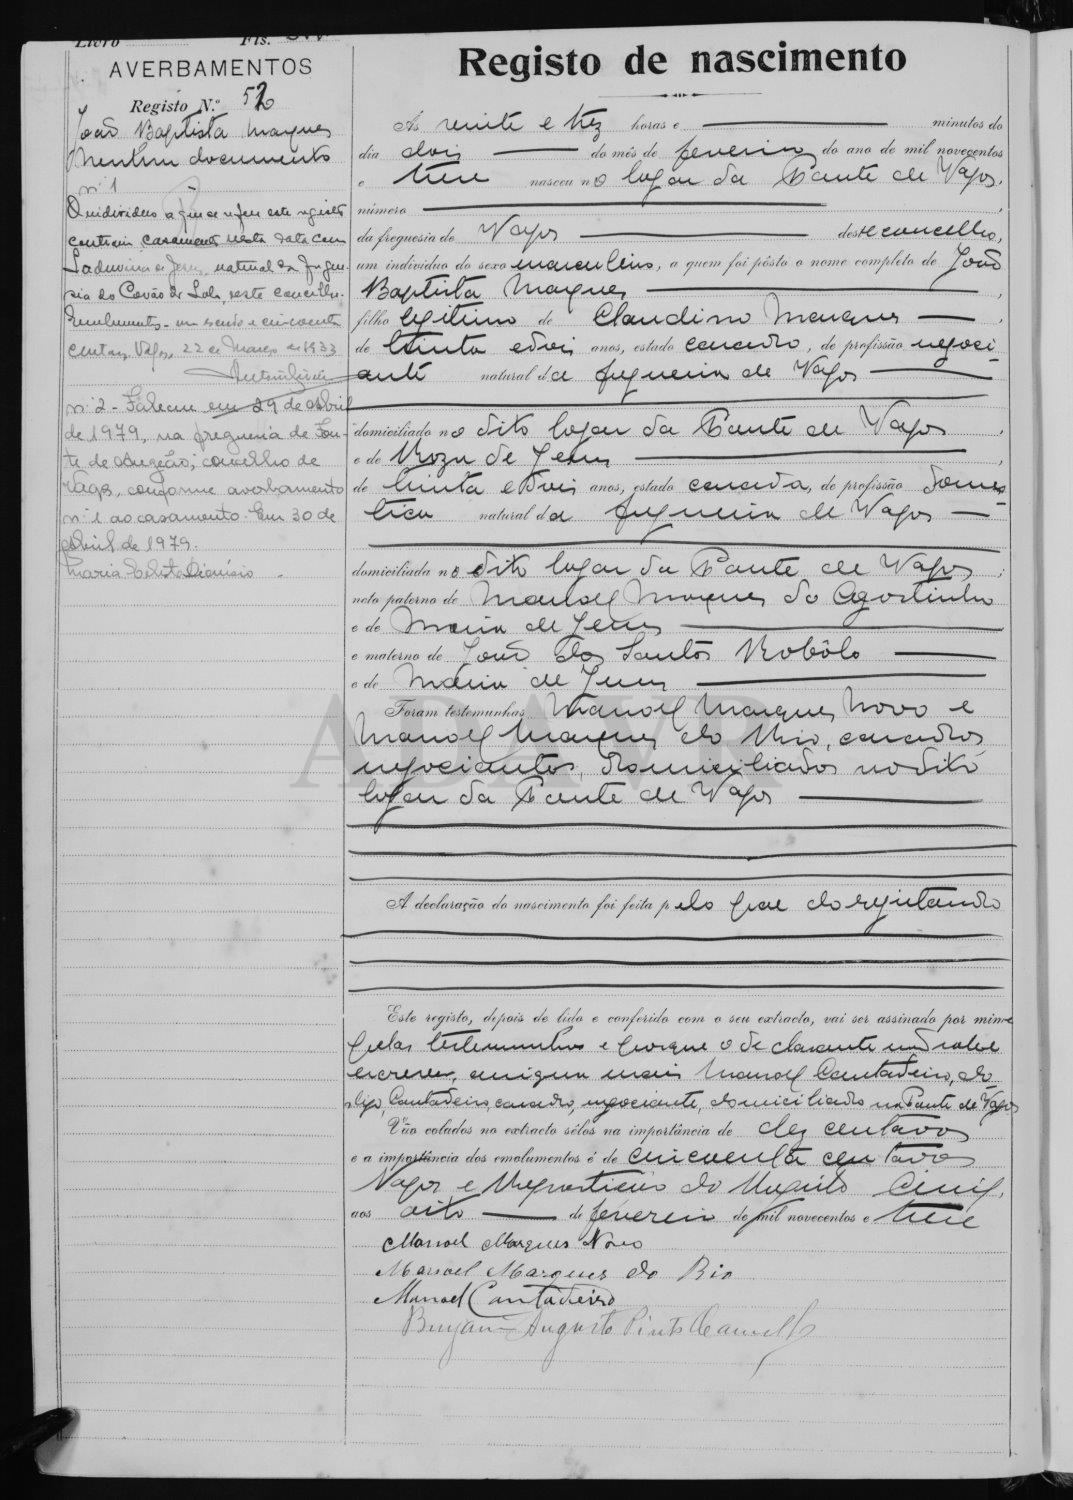 Livro Fls.
AVERBAMENTOS
Registo N.º 52
João Baptista Marques
Nenhum documento
n.º 1
O individuo a que se refere este registo
contraiu casamento nesta data com
Ludovina de Jesus, natural da fregue-
sia do Covão do Lobo, deste concelho.
Emolumentos - um escudo e cincoenta
centavos. Vagos, 22 de Março de 1933
n.º 2 - Faleceu em 29 de Abril
de 1979, na freguesia de Fon-
te de Angeão, concelho de
Vagos, conforme averbamento
n.º 1 ao casamento. Em 30 de
Abril de 1979.
Maria Dionísio
Registo de nascimento
Ás vinte e trez horas e minutos do
dia dois do mês de fevereiro do ano de mil novecentos
e treze nasceu no logar da Ponte de Vagos,
número
da freguesia de Vagos deste concelho,
um individuo do sexo masculino, a quem foi pôsto o nome completo de João
Baptista Marques
filho legitimo de Claudino Marques
de trinta e dois anos, estado casado, de profissão negoci-
ante natural da freguesia de Vagos
domiciliado no dito logar da Ponte de Vagos
e de Roza de Jesus
de trinta e dois anos, estado casada, de profissão domes-
tica natural da freguesia de Vagos
domiciliada no dito logar da Ponte de Vagos;
neto paterno de Manoel Marques do Agostinho
e de Maria de Jesus
e materno de João dos Santos Robôlo
e de Maria de Jesus
Foram testemunhas Manoel Marques Novo e
Manoel Marques do Rio, casados,
negociantes, domiciliados no dito
logar da Ponte de Vagos
A declaração do nascimento foi feita pelo pae do registando
Este registo, depois de lido e conferido com o seu extracto, vai ser assinado por mim e
pelas testemunhas e porque o declarante não sabe
escrever, assigna mais Manoel Cantadeiro, do-
digo, Cantadeiro, casado, negociante, domiciliado na Ponte de Vagos
Vão colados no extracto sêlos na importância de dez centavos
e a importância dos emolumentos é de cincoenta centavos
Vagos e Repartição do Registo Civil,
aos oito de fevereiro de mil novecentos e treze
Manoel Marques Novo
Manoel Marques do Rio
Manoel Cantadeiro
Benjamin Augusto Pinto
ADAVR